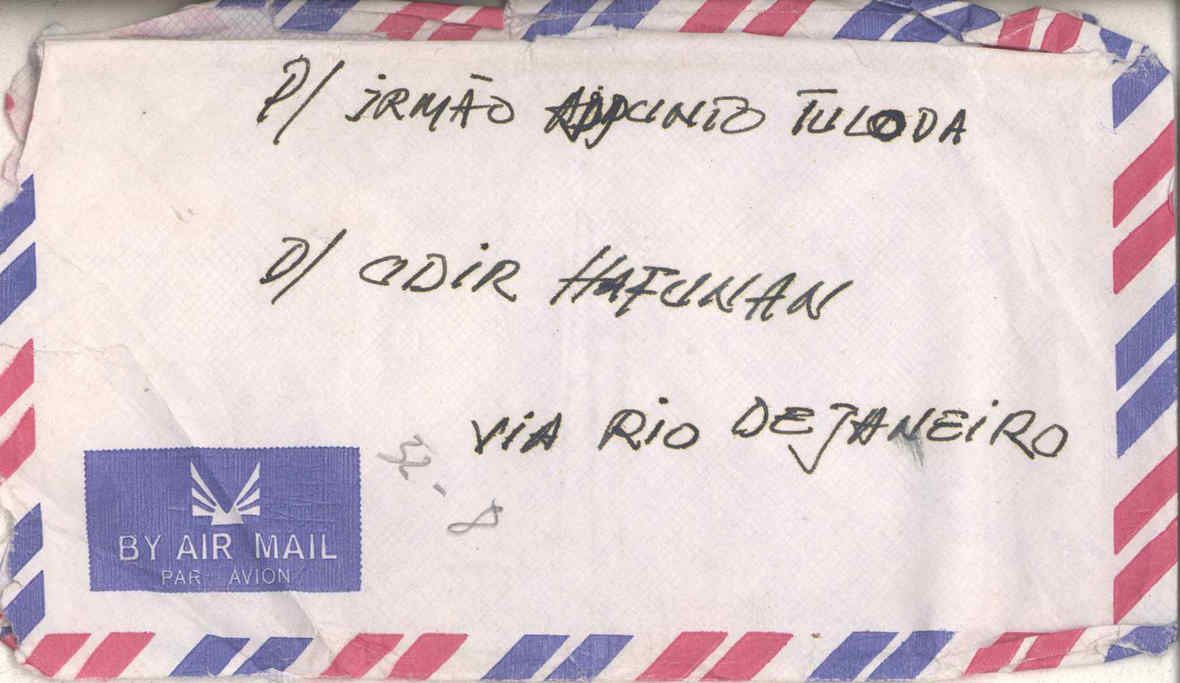 P/ IRMÃO TULODA
D/ ODIR HAFUNAN
VIA RIO DE JANEIRO
BY AIR MAIL
PAR AVION